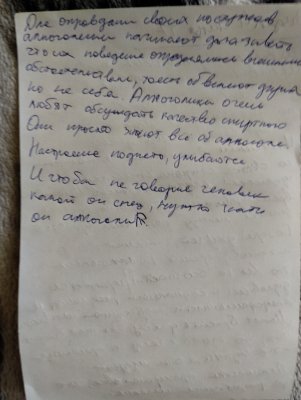 Для оправдания своих поступков
алкоголики начинают доказывать
что их поведение определялось внешними
обстоятельствами, то есть обвиняют других
но не себя. Алкоголики очень
любят обсуждать качество спиртного
Они просто знают все об алкоголе.
Настроение поднято, улыбаются
И чтобы не говорил человек
какой он спец, нужно
он алкоголик